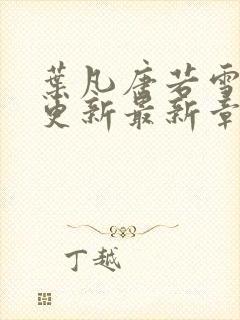 葉凡唐若雪
更新最新章
丁越